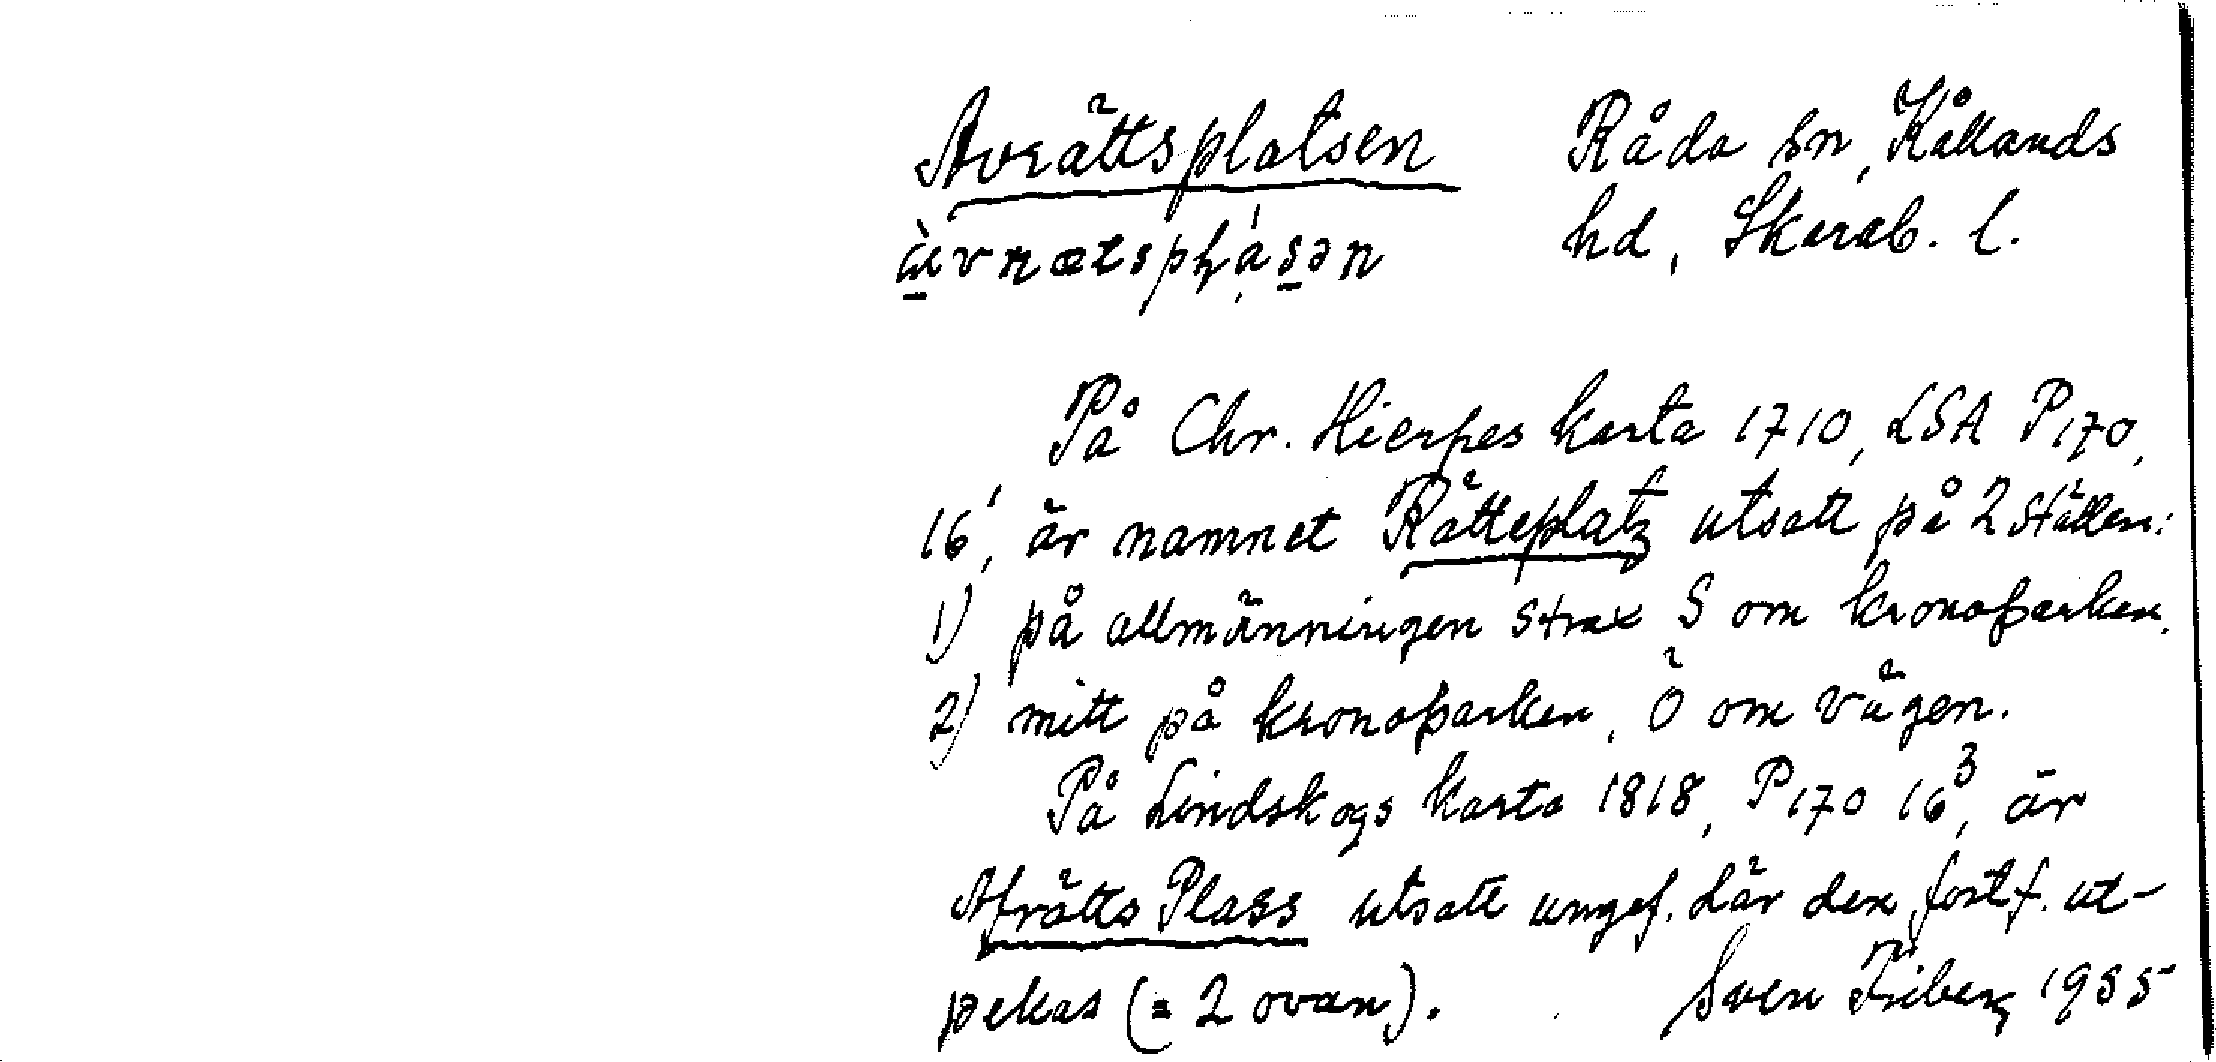 Avrättsplatsen Råda sn, Kållands
hd, Skarab. l.
På Chr. Hierpes karta 1710, LSA P170,
16¹, är namnet Rätteplatz utsatt på 2 ställen:
1) på allmänningen strax S om kronoparken.
2) mitt på kronoparken, Ö om vägen.
På Lindskogs karta 1818, P170 16³, är
Afrätts Plass utsatt ungef. där den fortf. ut-
pekas (= 2 ovan). Sven Friberg 1955